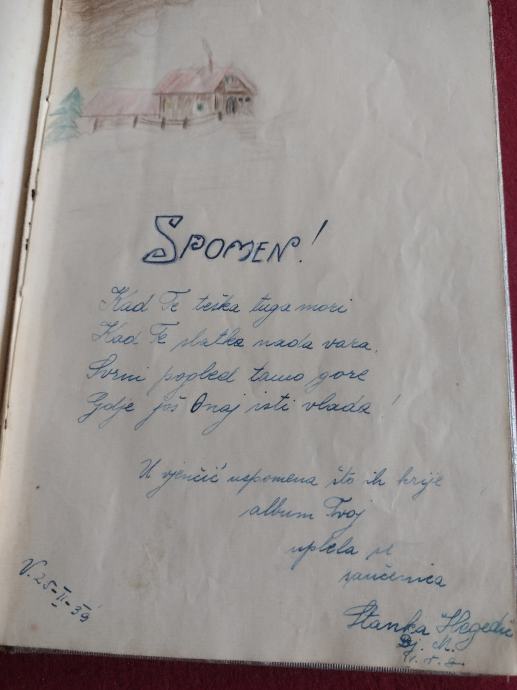 SPOMEN!
Kad Te teška tuga mori
Kad Te slatka nada vara.
Svrni pogled tamo gore
Gdje još Onaj isti vlada!
U vjenčić uspomena što ih krije
album Tvoj
uplela se
zaučenica
Stanka Hegedić
V. 25-II-39